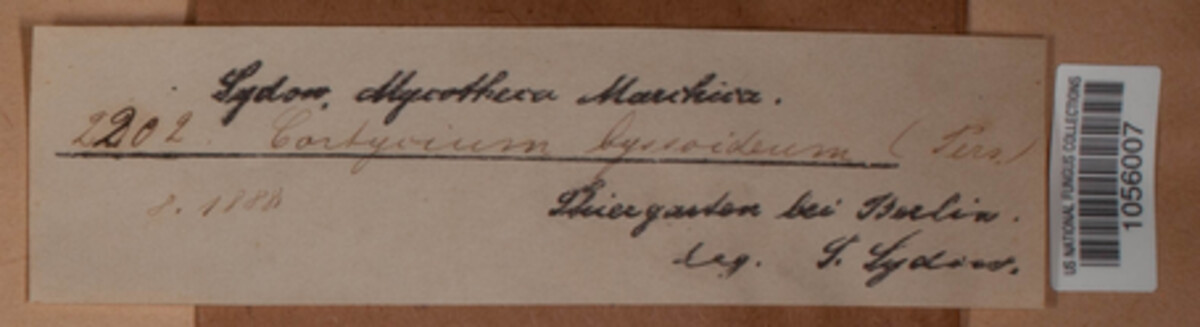 Sydow, Mycotheca Marchica.
2202. Corticium byssoideum (Pers)
8. 1888
Thiergarten bei Berlin.
leg. P. Sydow.
US NATIONAL FUNGUS COLLECTIONS
1056007